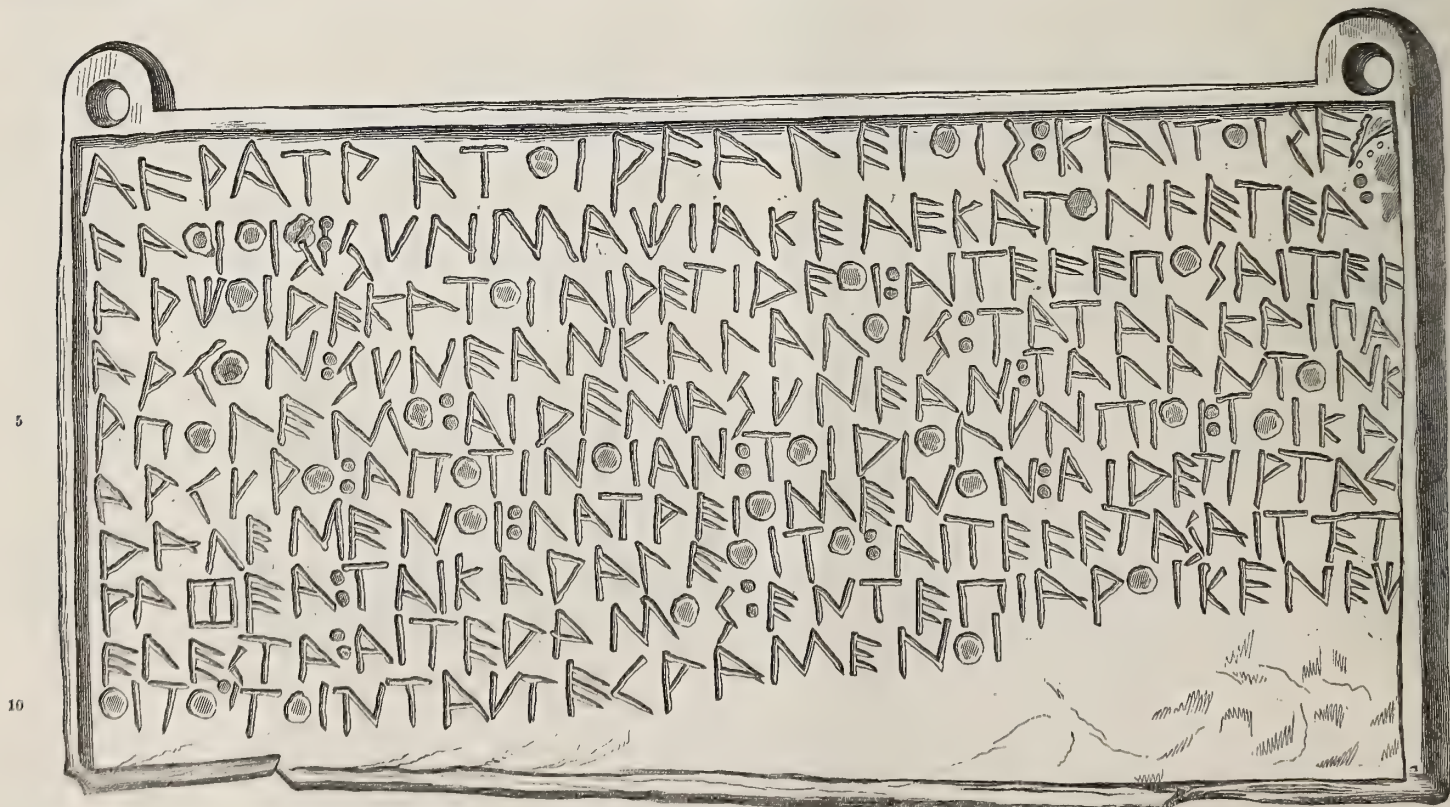 ΑϜΡΑΤΡΑΤΟΙΡϜΑΛΕΙΟΙΣ:ΚΑΙΤΟΙΣΕΡ
ϜΑΟΙΟΙΣ:ΣΥΝΜΑΧΙΑΚΕΑΕΚΑΤΟΝϜΕΤΕΑ:
ΑΡΧΟΙΔΕΚΑΤΟΙ:ΑΙΔΕΤΙΔΕΟΙ:ΑΙΤΕϜΕΠΟΣΑΙΤΕϜ
ΑΡΓΟΝ:ΣΥΝΕΑΝΚΑΛΑΛΟΙΣ:ΤΑΤΑΛΚΑΙΠΑ
ΡΠΟΛΕΜΟ:ΑΙΔΕΜΑΣΥΝΕΑΝ:ΤΑΛΑΝΤΟΝΚ
ΑΡΓΥΡΟ:ΑΠΟΤΙΝΟΙΑΝ:ΤΟΙΔΙΟΛΥΝΠΙΟΙ:ΤΟΙΚΑ
ΔΑΛΕΜΕΝΟΙ:ΛΑΤΡΕΙΟΜΕΝΟΝ:ΑΙΔΕΤΙΡΤΑΓ
ΡΑΦΕΑ:ΤΑΙΚΑΔΑΛΕΟΙΤΟ:ΑΙΤΕϜΕΤΑΣΑΙΤΕΤ
ΕΛΕΣΤΑ:ΑΙΤΕΔΑΜΟΣ:ΕΝΤΕΠΙΑΡΟΙΚΕΝΕΧ
ΟΙΤΟ:ΤΟΙΝΤΑΥΤΕΓΡΑΜΕΝΟΙ
5
10